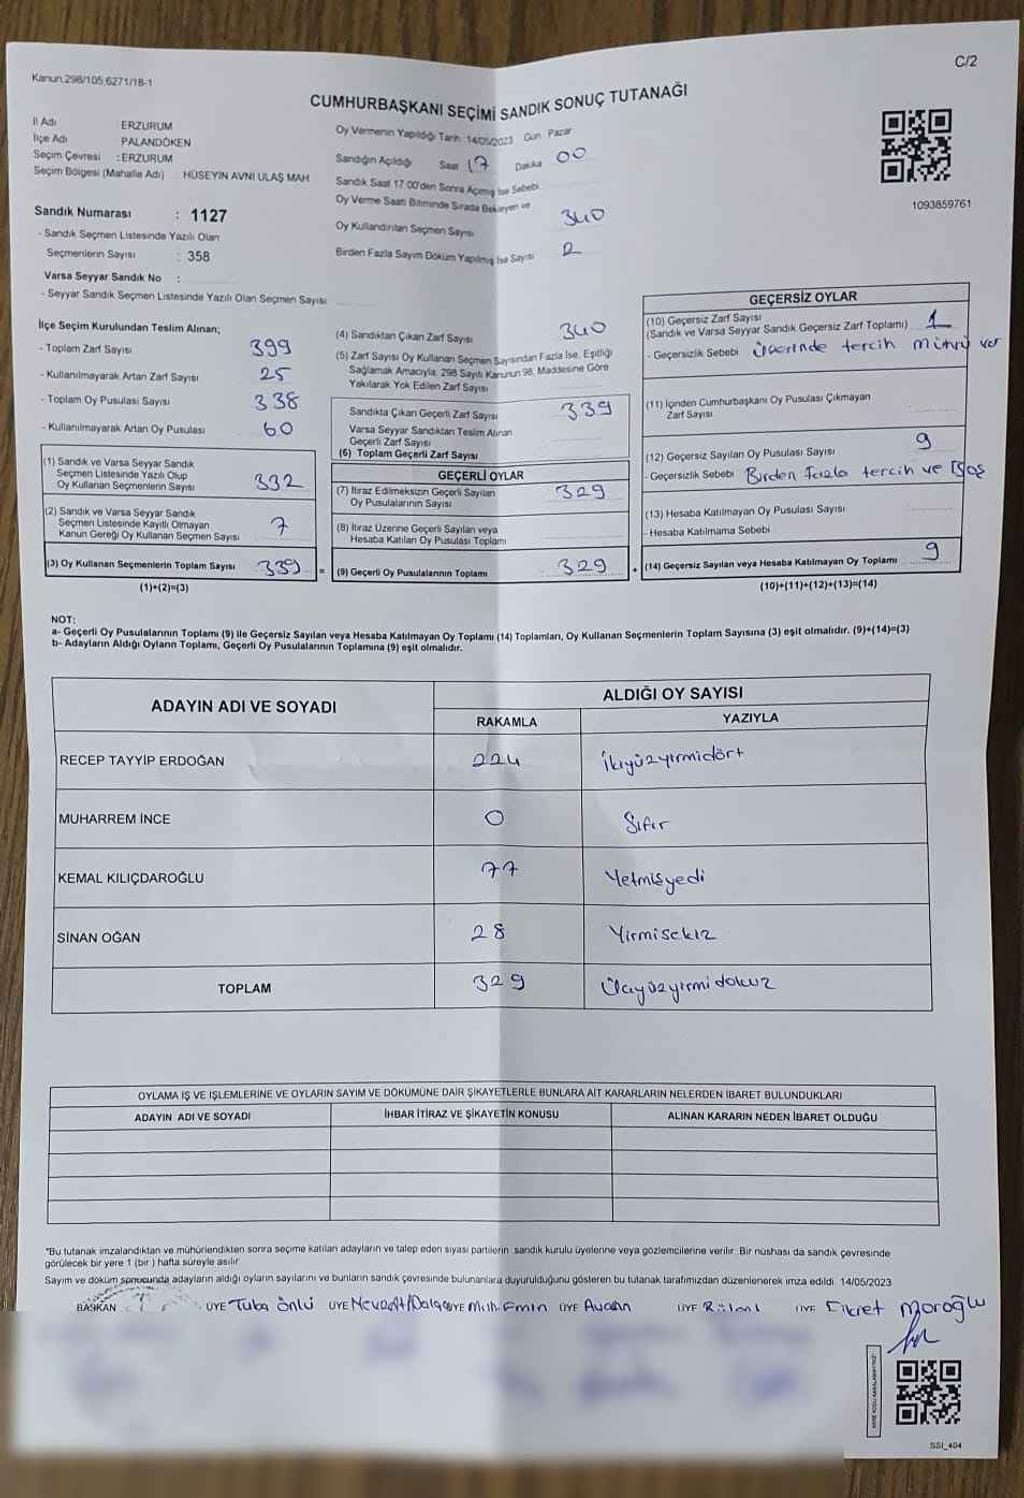 Kanun.298/105,6271/18-1
C/2
CUMHURBAŞKANI SEÇİMİ SANDIK SONUÇ TUTANAĞI
İl Adı ERZURUM
İlçe Adı PALANDÖKEN
Seçim Çevresi : ERZURUM
Seçim Bölgesi (Mahalle Adı) HÜSEYİN AVNİ ULAŞ MAH
Sandık Numarası : 1127
- Sandık Seçmen Listesinde Yazılı Olan
Seçmenlerin Sayısı : 358
Varsa Seyyar Sandık No :
- Seyyar Sandık Seçmen Listesinde Yazılı Olan Seçmen Sayısı
Oy Vermenin Yapıldığı Tarih 14/05/2023 Gün Pazar
Sandığın Açıldığı Saat 17 Dakika 00
Sandık Saat 17:00'den Sonra Açılmış İse Sebebi
Oy Verme Saati Bitiminde Sırada Bekleyen ve
Oy Kullandırılan Seçmen Sayısı 340
Birden Fazla Sayım Döküm Yapılmış İse Sayısı 2
1093859761
İlçe Seçim Kurulundan Teslim Alınan;
- Toplam Zarf Sayısı 399
- Kullanılmayarak Artan Zarf Sayısı 25
- Toplam Oy Pusulası Sayısı 338
- Kullanılmayarak Artan Oy Pusulası 60
(1) Sandık ve Varsa Seyyar Sandık
Seçmen Listesinde Yazılı Olup
Oy Kullanan Seçmenlerin Sayısı 332
(2) Sandık ve Varsa Seyyar Sandık
Seçmen Listesinde Kayıtlı Olmayan
Kanun Gereği Oy Kullanan Seçmen Sayısı 7
(3) Oy Kullanan Seçmenlerin Toplam Sayısı 339 =
(1)+(2)=(3)
(4) Sandıktan Çıkan Zarf Sayısı 340
(5) Zarf Sayısı Oy Kullanan Seçmen Sayısından Fazla İse, Eşitliği
Sağlamak Amacıyla, 298 Sayılı Kanunun 98. Maddesine Göre
Yakılarak Yok Edilen Zarf Sayısı
Sandıkta Çıkan Geçerli Zarf Sayısı 339
Varsa Seyyar Sandıktan Teslim Alınan
Geçerli Zarf Sayısı
(6) Toplam Geçerli Zarf Sayısı
GEÇERLİ OYLAR
(7) İtiraz Edilmeksizin Geçerli Sayılan
Oy Pusulalarının Sayısı 329
(8) İtiraz Üzerine Geçerli Sayılan veya
Hesaba Katılan Oy Pusulası Toplamı
(9) Geçerli Oy Pusulalarının Toplamı 329 +
GEÇERSİZ OYLAR
(10) Geçersiz Zarf Sayısı
(Sandık ve Varsa Seyyar Sandık Geçersiz Zarf Toplamı) 1
- Geçersizlik Sebebi Üzerinde tercih mührü var
(11) İçinden Cumhurbaşkanı Oy Pusulası Çıkmayan
Zarf Sayısı
(12) Geçersiz Sayılan Oy Pusulası Sayısı 9
- Geçersizlik Sebebi Birden Fazla tercih ve Boş
(13) Hesaba Katılmayan Oy Pusulası Sayısı
- Hesaba Katılmama Sebebi
(14) Geçersiz Sayılan veya Hesaba Katılmayan Oy Toplamı 9
(10)+(11)+(12)+(13)=(14)
NOT:
a- Geçerli Oy Pusulalarının Toplamı (9) ile Geçersiz Sayılan veya Hesaba Katılmayan Oy Toplamı (14) Toplamları, Oy Kullanan Seçmenlerin Toplam Sayısına (3) eşit olmalıdır. (9)+(14)=(3)
b- Adayların Aldığı Oyların Toplamı, Geçerli Oy Pusulalarının Toplamına (9) eşit olmalıdır.
ADAYIN ADI VE SOYADI ALDIĞI OY SAYISI
RAKAMLA YAZIYLA
RECEP TAYYİP ERDOĞAN 224 İkiyüzyirmidört
MUHARREM İNCE 0 Sıfır
KEMAL KILIÇDAROĞLU 77 Yetmişyedi
SİNAN OĞAN 28 Yirmisekiz
TOPLAM 329 Üçyüzyirmidokuz
OYLAMA İŞ VE İŞLEMLERİNE VE OYLARIN SAYIM VE DÖKÜMÜNE DAİR ŞİKAYETLERLE BUNLARA AİT KARARLARIN NELERDEN İBARET BULUNDUKLARI
ADAYIN ADI VE SOYADI İHBAR İTİRAZ VE ŞİKAYETİN KONUSU ALINAN KARARIN NEDEN İBARET OLDUĞU
*Bu tutanak imzalandıktan ve mühürlendikten sonra seçime katılan adayların ve talep eden siyasi partilerin sandık kurulu üyelerine veya gözlemcilerine verilir. Bir nüshası da sandık çevresinde
görülecek bir yere 1 (bir) hafta süreyle asılır
Sayım ve döküm sonucunda adayların aldığı oyların sayılarını ve bunların sandık çevresinde bulunanlara duyurulduğunu gösteren bu tutanak tarafımızdan düzenlenerek imza edildi 14/05/2023
BAŞKAN ÜYE Tuba Önlü ÜYE ÜYE Muh. Emin ÜYE ÜYE ÜYE Fikret Moroğlu
SSI_404